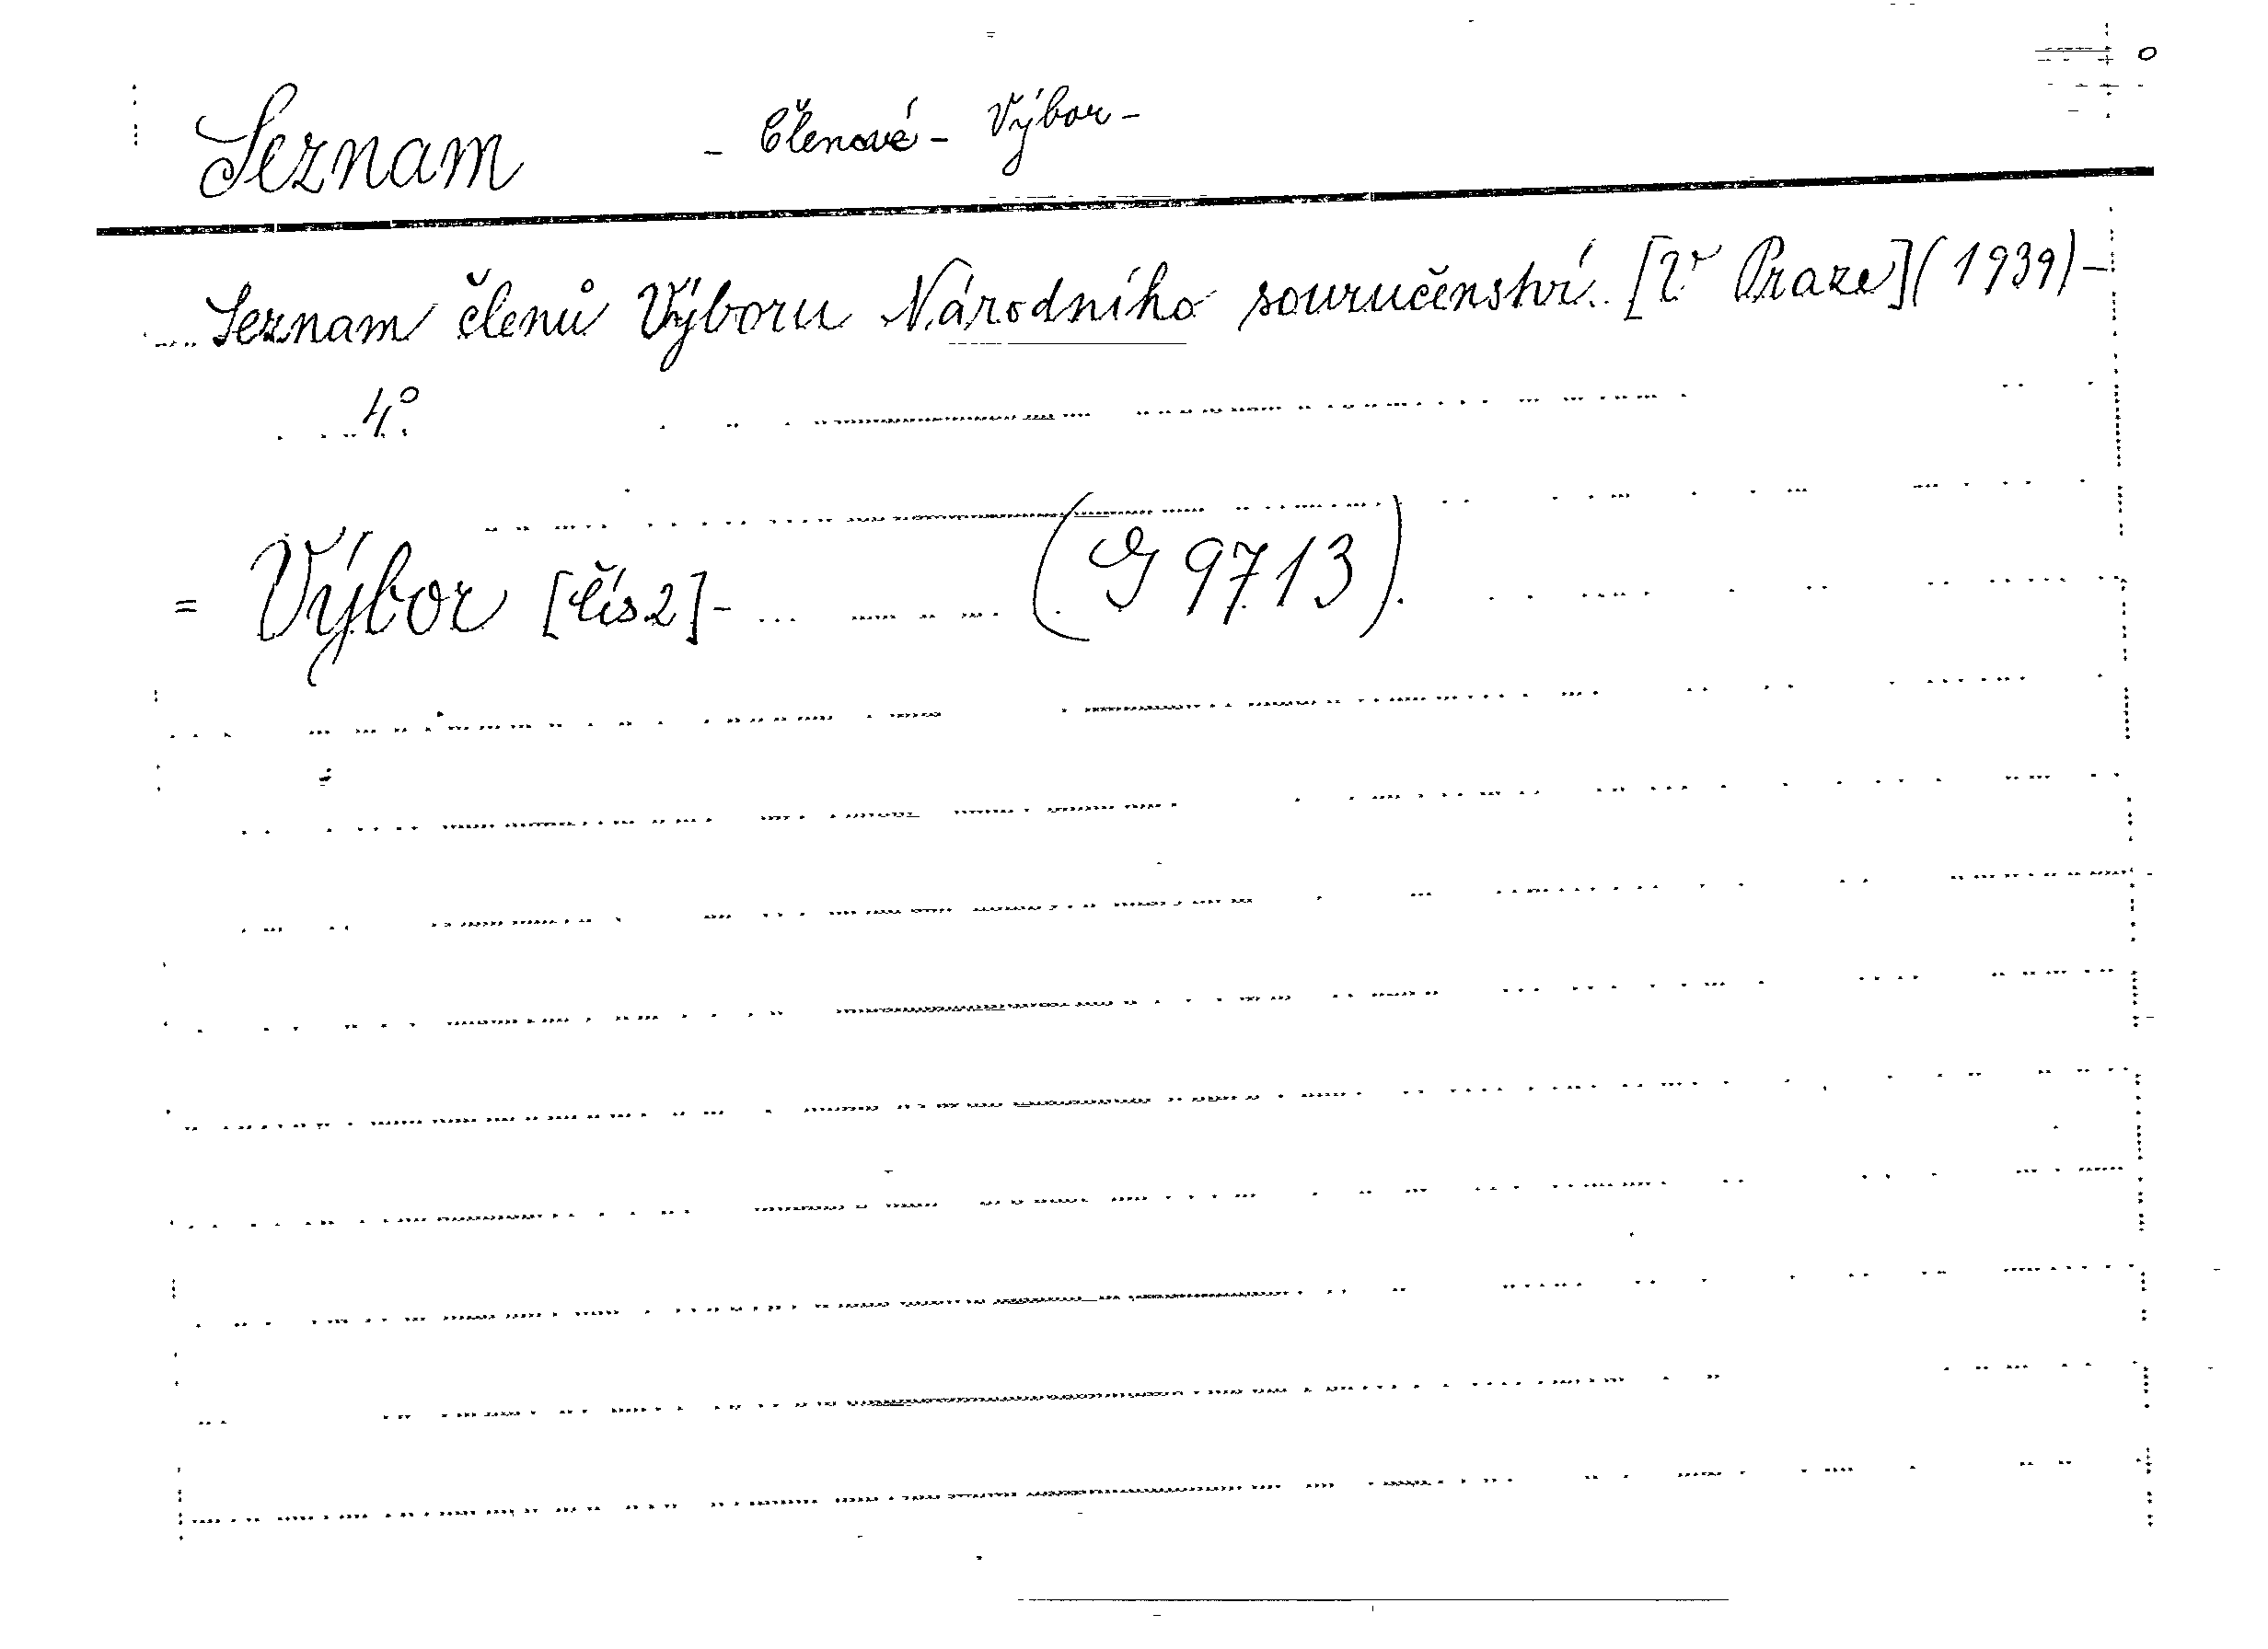 Seznam - Členové - Výbor -
Seznam členů Výboru Národního souručenství. [V Praze] (1939) -
4°.
= Výbor [čís. 2] - (G 9713).